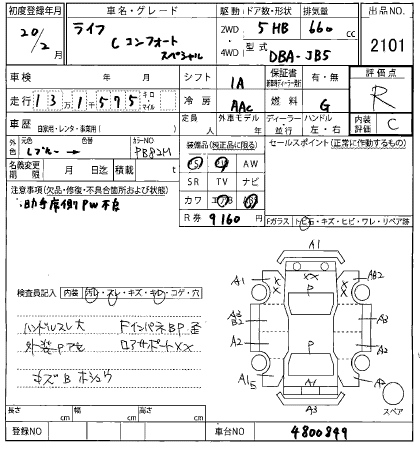 初度登録年月 車名・グレード 駆動 ドア数・形状 排気量 出品NO
20/2月 ライフ Cコンフォートスペシャル 2WD 4WD 5HB 660cc 2101
型式 DBA-JB5
車検 年 月 シフト IA 保証書 有・無 評価点 R
走行 131千575キロ・マイル 冷房 AAC 燃料 G
車歴 自家用・レンタ・事業用( ) 定員 人 外車モデル 年 ディーラー 並行 ハンドル 左・右 内装評価 C
外色 元色 シブレー 色替 カラーNO PB82M 装備品(純正品に限る) セールスポイント(正常に作動するもの)
PS PW AW
名義変更期限 月 日迄 積載 SR TV ナビ
注意事項(欠品・修復・不具合箇所および状態) カワ エアB ABS
助手席側PW不良 R券 9160円
Fガラス トビ石・キズ・ヒビ・ワレ・リペア跡
検査員記入 内装 汚レ・スレ・キズ・キレ・コゲ・穴
ハンドルスレ大 FインパネBP歪
外装P.アセ ロアサポートXX
キズBホシュウ
A1
A1 XX A2
X P X
X X
A3 B2 A3
A2 P A2
A1S A1 A2
A3 スペア
長さ cm 幅 cm 高さ cm
登録NO 車台NO 4800849